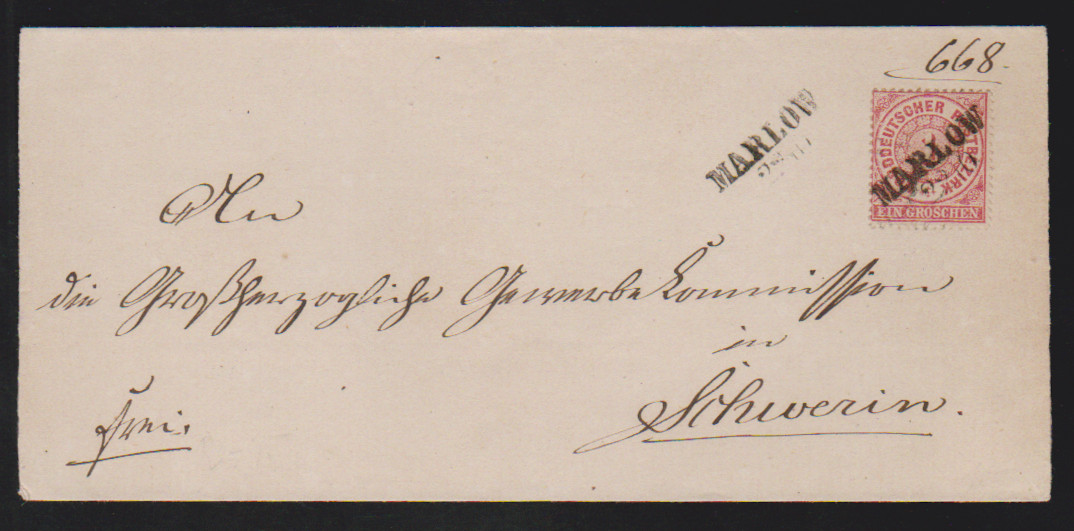 668.
NORDDEUTSCHER POSTBEZIRK
MARLOW
EIN GROSCHEN
MARLOW
An
die Großherzogliche Gewerbe Kommission
in
Schwerin.
frei.